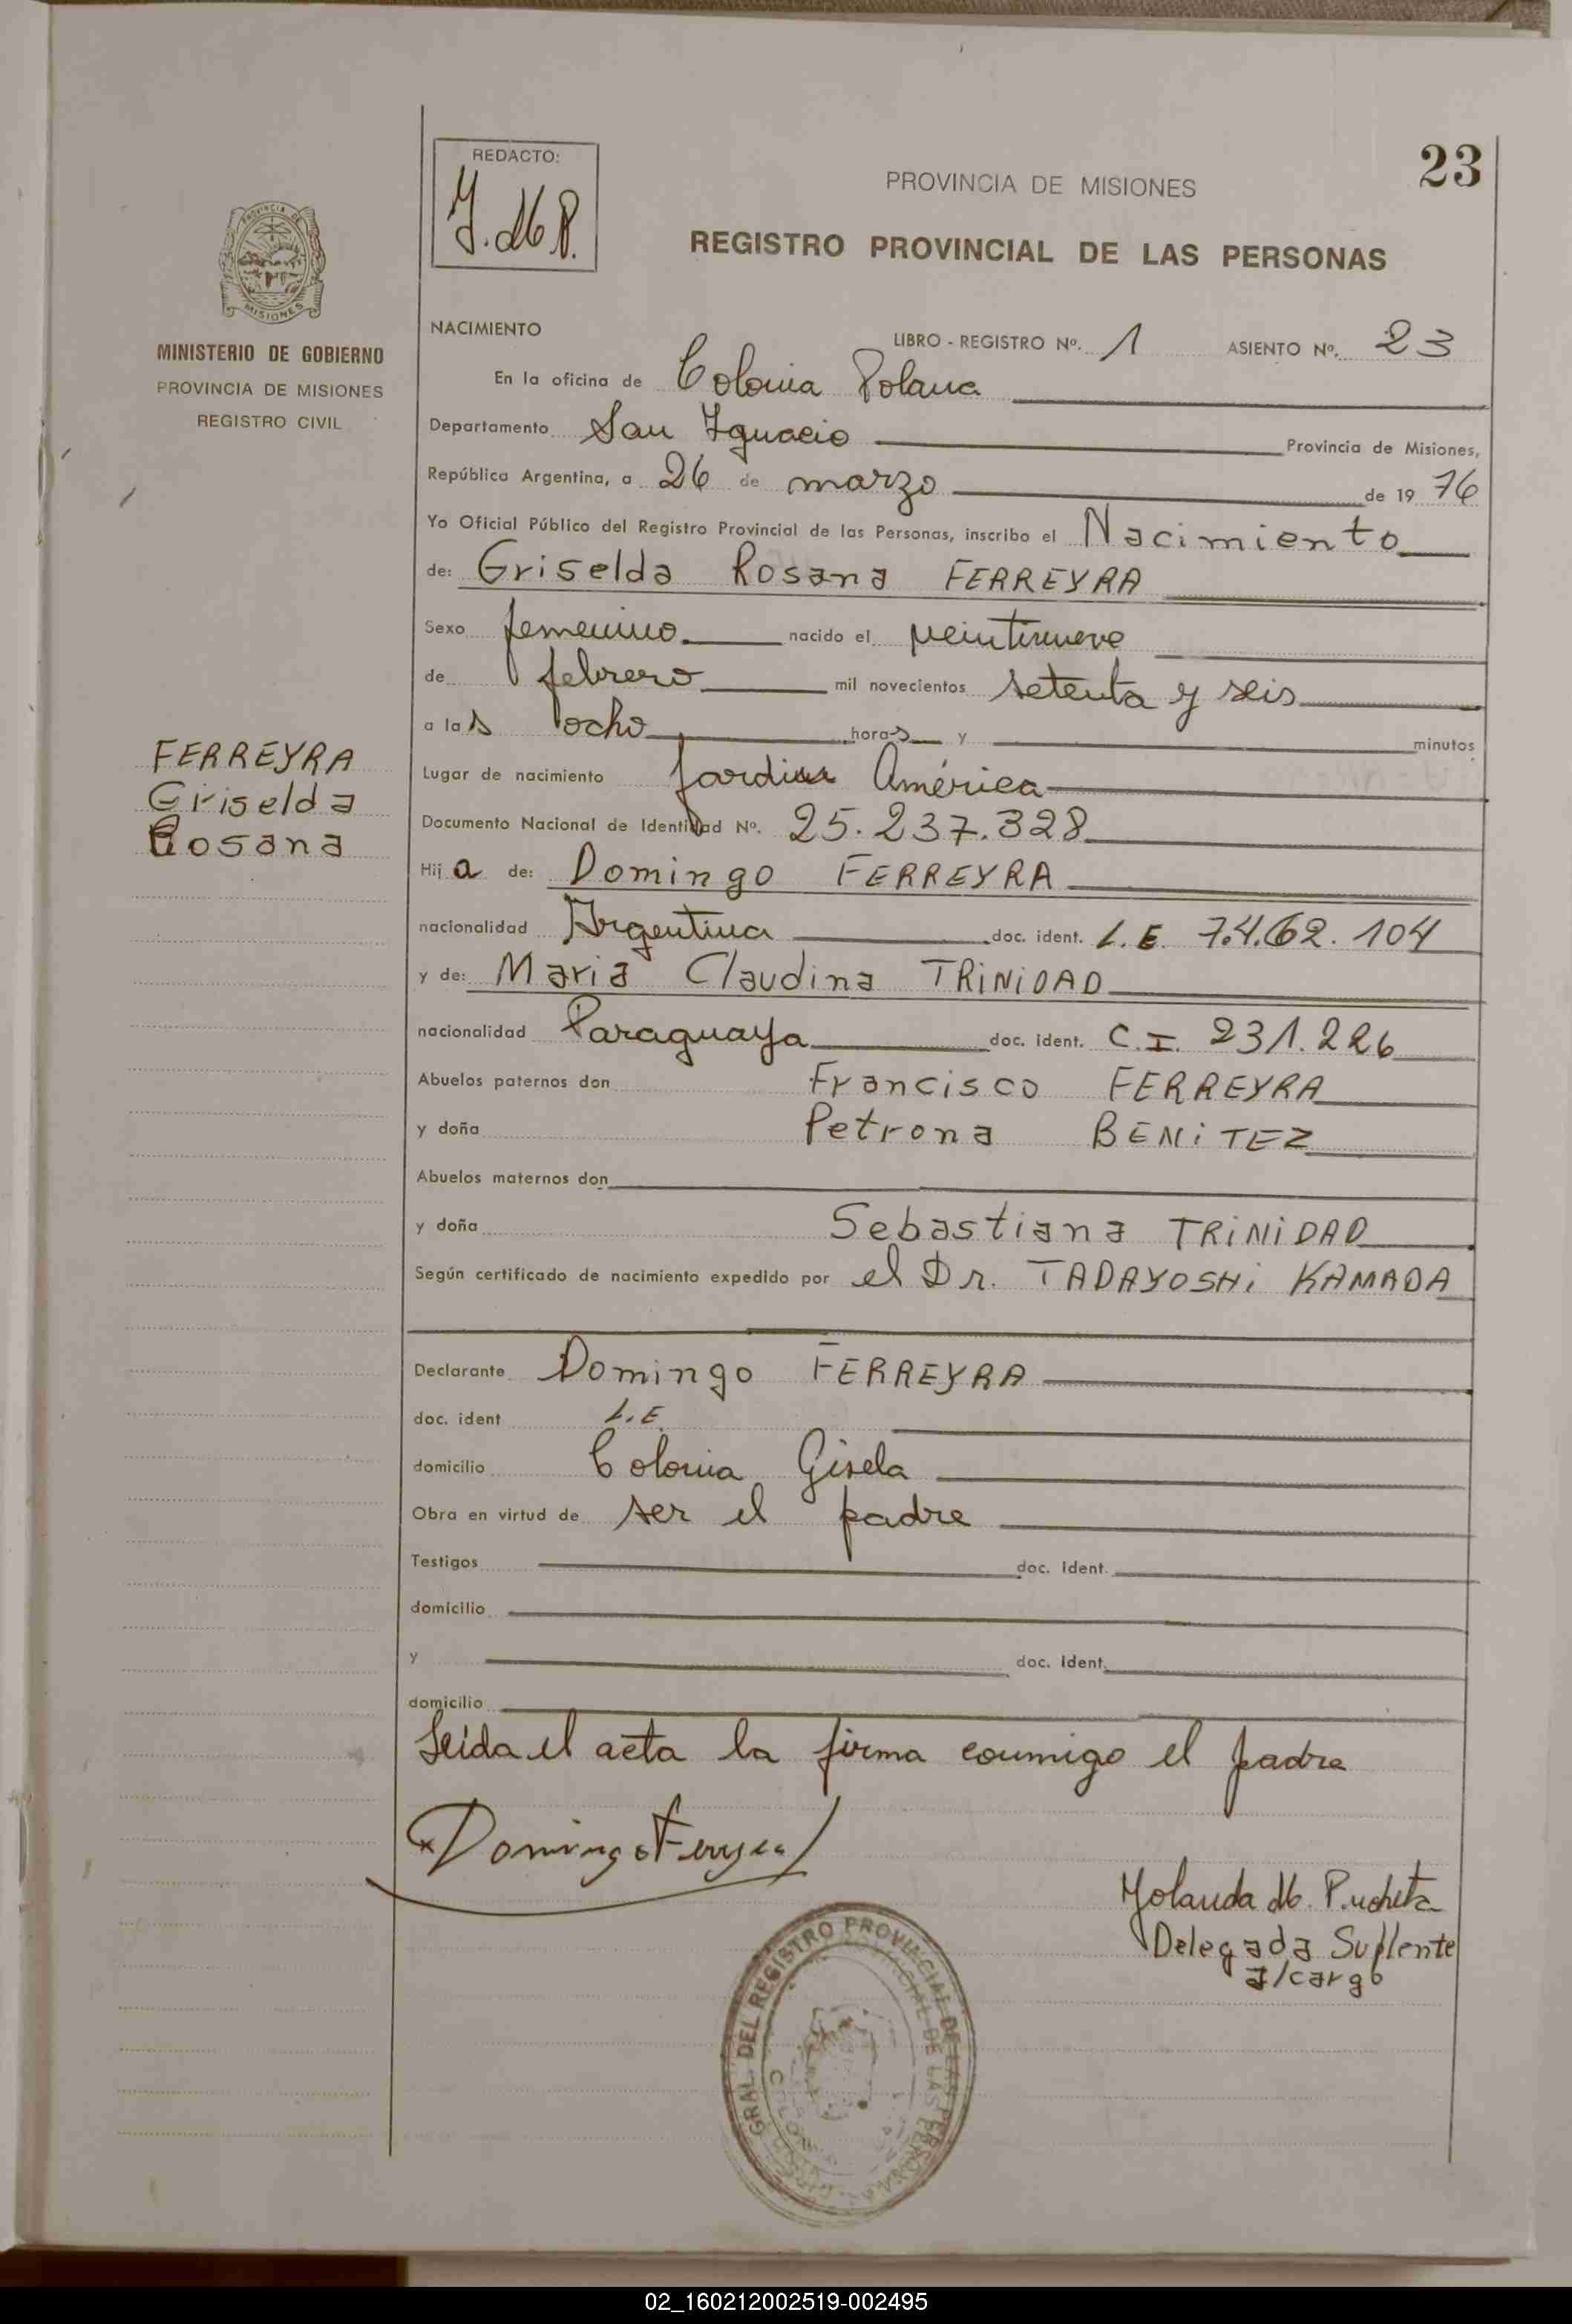 23
REDACTO:
Y. db P.
PROVINCIA DE MISIONES
REGISTRO PROVINCIAL DE LAS PERSONAS
PROVINCIA DE
MISIONES
MINISTERIO DE GOBIERNO
PROVINCIA DE MISIONES
REGISTRO CIVIL
NACIMIENTO LIBRO - REGISTRO Nº. 1 ASIENTO Nº. 23
En la oficina de Colonia Polana
Departamento San Ignacio Provincia de Misiones,
República Argentina, a 26 de marzo de 19 76
Yo Oficial Público del Registro Provincial de las Personas, inscribo el Nacimiento
de: Griselda Rosana FERREYRA
Sexo femenino nacido el veintinueve
de febrero mil novecientos setenta y seis
a las ocho horas y minutos
FERREYRA
Griselda
Rosana
Lugar de nacimiento Jardin América
Documento Nacional de Identidad Nº. 25.237.328
Hija de: Domingo FERREYRA
nacionalidad Argentina doc. ident. L.E. 7.4.62.104
y de: Maria Claudina TRiNiDAD
nacionalidad Paraguaya doc. ident. C.I. 231.226
Abuelos paternos don Francisco FERREYRA
y doña Petrona BENiTEZ
Abuelos maternos don
y doña Sebastiana TRiNiDAD
Según certificado de nacimiento expedido por el Dr. TADAYOSHi KAMADA
Declarante Domingo FERREYRA
doc. ident L.E.
domicilio Colonia Gisela
Obra en virtud de ser el padre
Testigos doc. ident.
domicilio
y doc. ident.
domicilio
Leída el acta la firma conmigo el padre
Domingo Ferreyra
Yolanda db. P.
Delegada Suplente
a/cargo
GRAL. DEL REGISTRO PROVINCIAL DE LAS PERSONAS
02_160212002519-002495